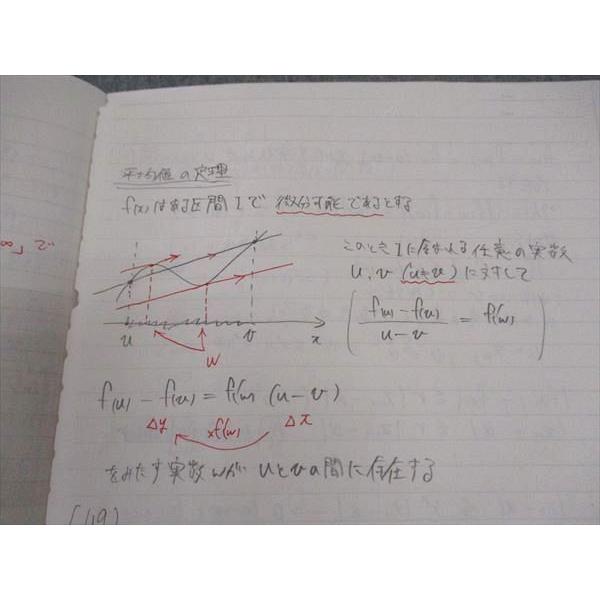 平均値の定理
f(x)はある区間Iで 微分可能であるとする
このときIに含まれる任意の実数
u, v (u≠v) に対して
u v x
w
(f(u) - f(v) / u - v = f'(w))
f(u) - f(v) = f'(w) (u - v)
Δy ×f'(w) Δx
をみたす実数wが uとvの間に存在する
(19)